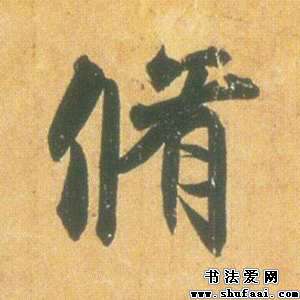 脩
书法爱网
www.shufaai.com